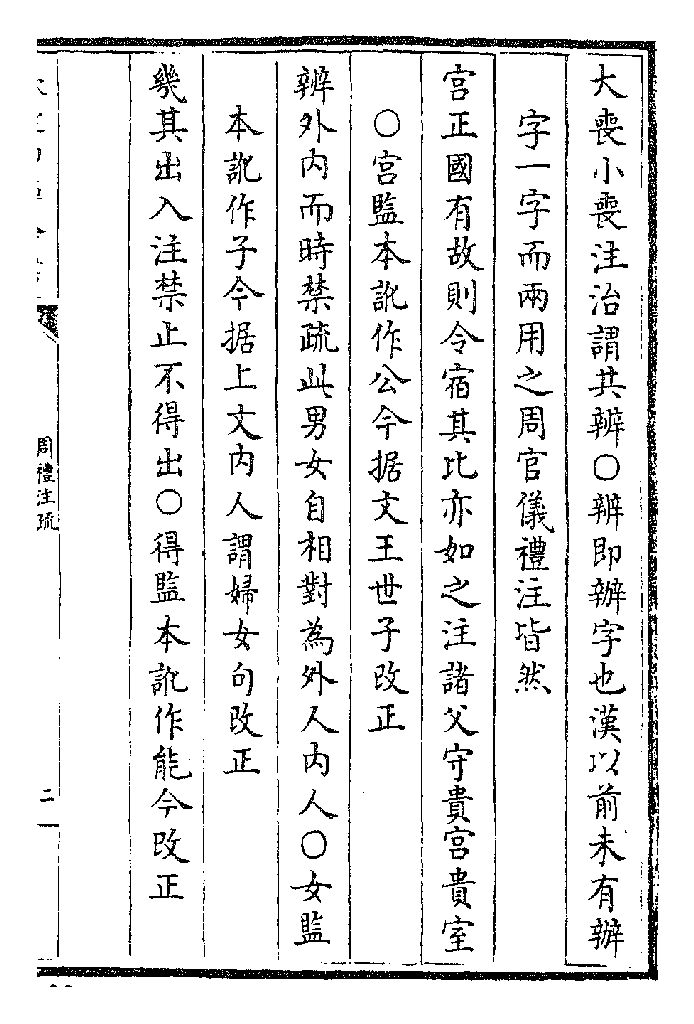 大喪小喪注治謂其辨○辨即辦字也漢以前未有辦
字一字而兩用之周官儀禮注皆然
宫正國有故則令宿其比亦如之注諸父守貴宫貴室
○宫監本訛作公今据文王世子改正
辨外内而時禁疏此男女自相對為外人内人○女監
本訛作子今据上文内人謂婦女句改正
幾其出入注禁止不得出○得監本訛作能今改正
周禮注疏
二